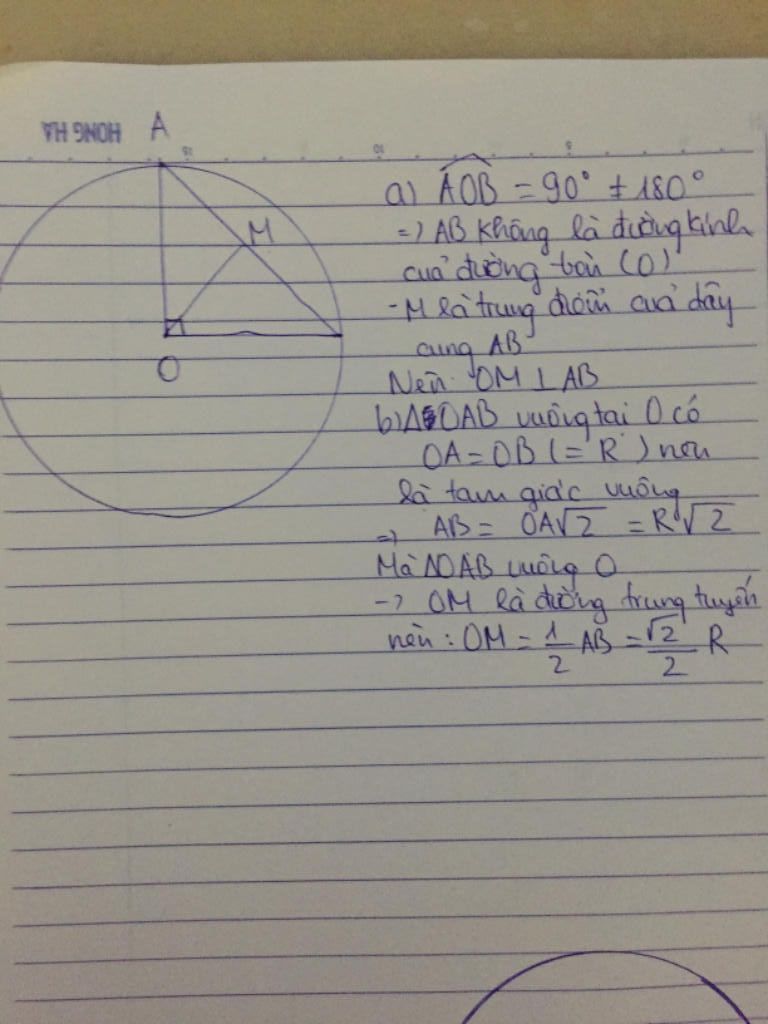 HONG HA
A
M
O
a) AOB = 90° ± 180°
=) AB không là đường kính
của đường tròn (O)
- M là trung điểm của dây
cung AB
Nên OM ⊥ AB
b) Δ OAB vuông tại O có
OA = OB (= R) nên
là tam giác vuông
=) AB = OA√2 = R√2
Mà ΔOAB vuông O
-> OM là đường trung tuyến
nên : OM = 1/2 AB = √2/2 R